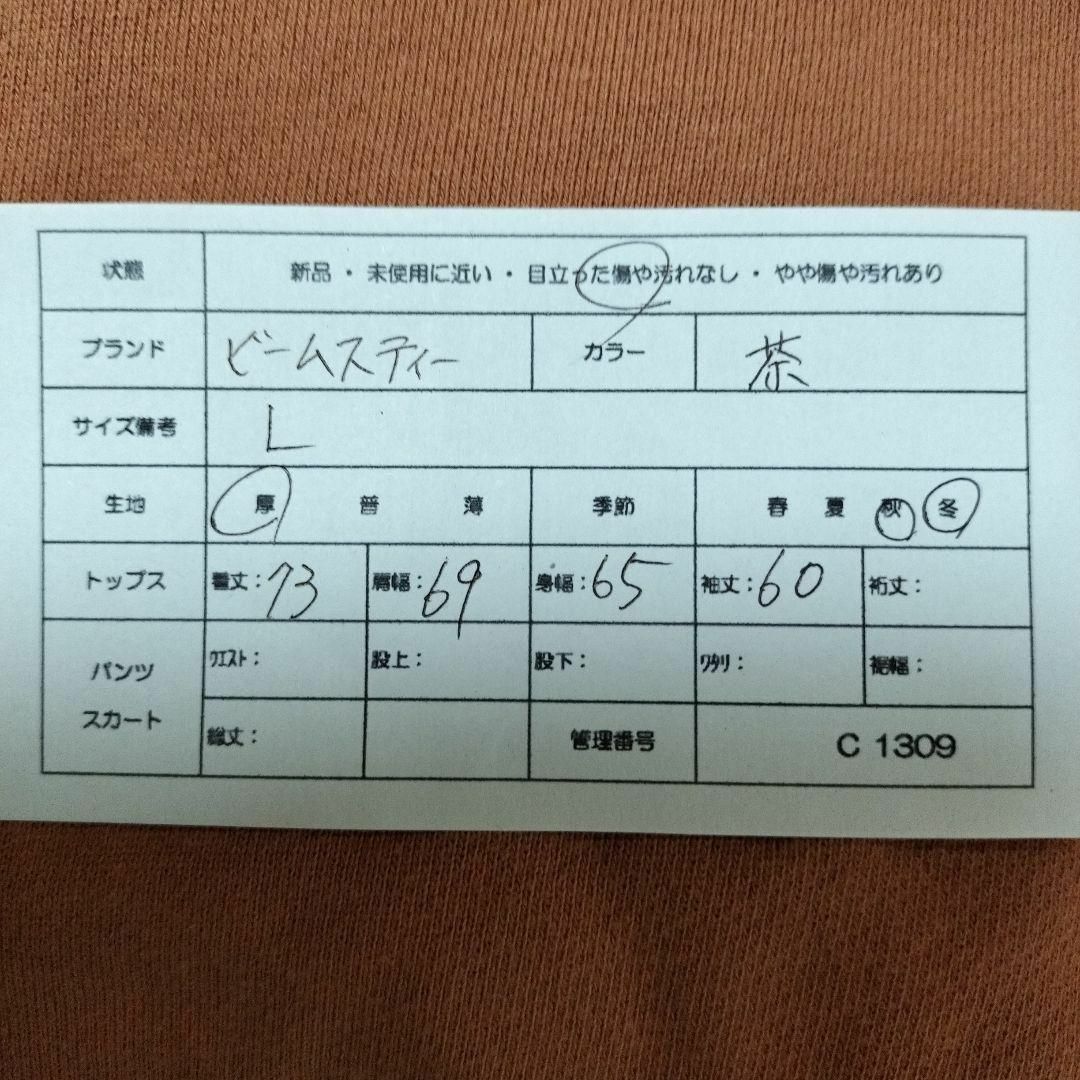 状態 新品 ・ 未使用に近い ・ 目立った傷や汚れなし ・ やや傷や汚れあり
ブランド ビームスティー カラー 茶
サイズ備考 L
生地 厚 普 薄 季節 春 夏 秋 冬
トップス 着丈：73 肩幅：69 身幅：65 袖丈：60 裄丈：
パンツ スカート ウエスト： 股上： 股下： ワタリ： 裾幅：
総丈： 管理番号 C 1309